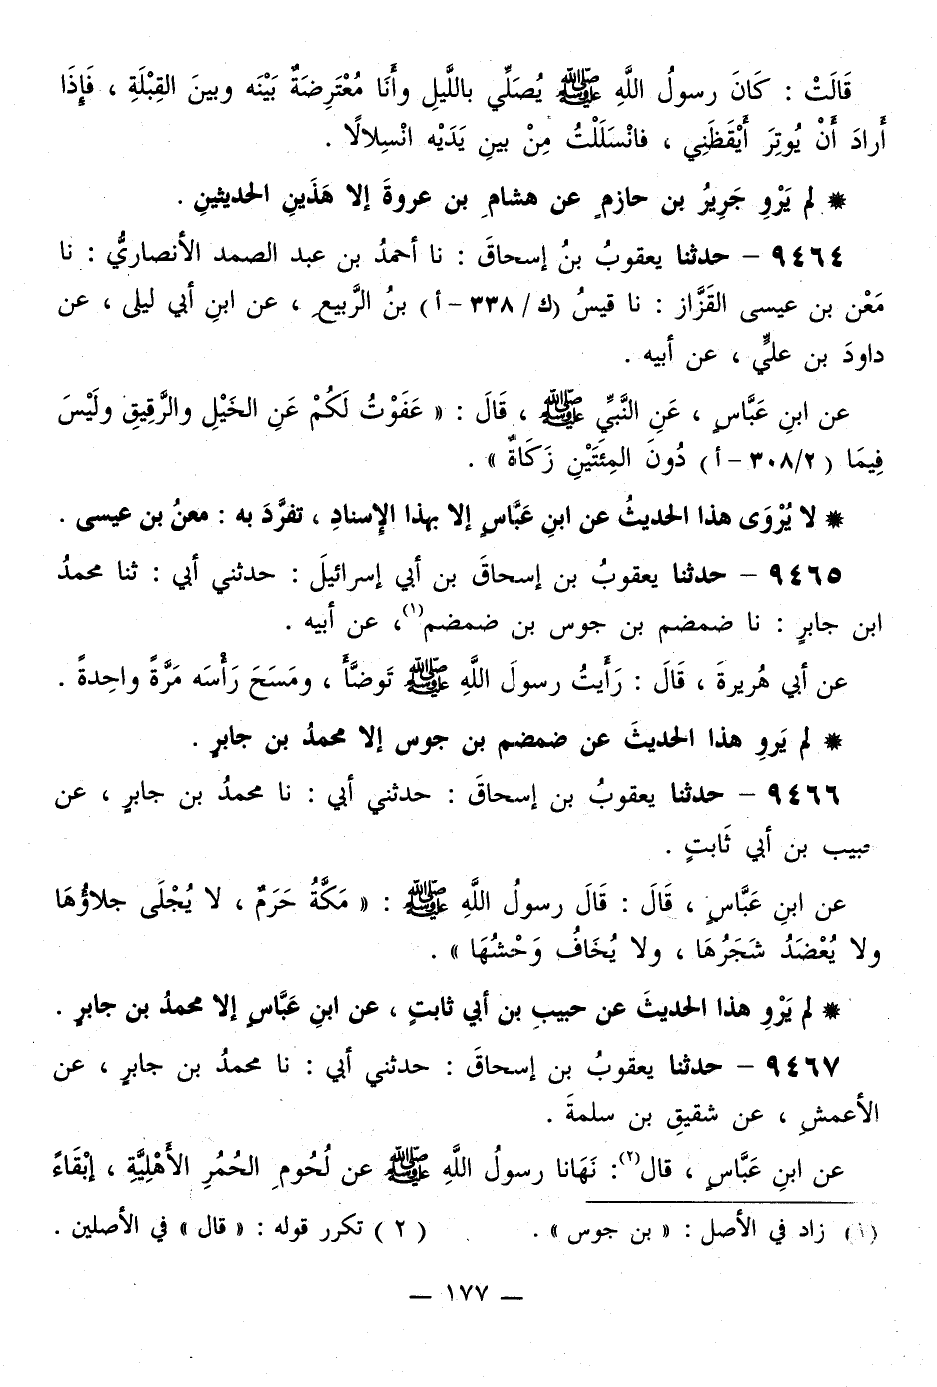 قَالَتْ : كَانَ رسولُ اللَّهِ ﷺ يُصَلِّي بالليلِ وأَنَا مُعْتَرِضَةٌ بَيْنَه وبينَ القِبْلَةِ ، فَإِذَا
أَرادَ أَنْ يُوتِرَ أَيْقَظَنِي ، فانْسَلَلْتُ مِنْ بينِ يَدَيْه انْسِلالًا .
* لم يَرْوِ جَرِيرُ بن حازمٍ عن هشامِ بن عروةَ إلا هَذَينِ الحديثينِ .
٩٤٦٤ – حدثنا يعقوبُ بنُ إسحاقَ : نا أحمدُ بن عبد الصمد الأنصاريُّ : نا
مَعْن بن عيسى القَزَّاز : نا قيسُ (ك/ ٣٣٨ – أ) بنُ الرَّبيعِ ، عن ابنِ أبي ليلى ، عن
داودَ بن عليٍّ ، عن أبيه .
عن ابنِ عَبَّاسٍ ، عَنِ النَّبيِّ ﷺ ، قَالَ : « عَفَوْتُ لَكُمْ عَنِ الخَيْلِ والرَّقِيقِ ولَيْسَ
فِيمَا (٣٠٨/٢ – أ) دُونَ المِئَتَيْنِ زَكَاةٌ » .
* لا يُرْوَى هذا الحديثُ عن ابنِ عَبَّاسٍ إلا بهذا الإِسنادِ ، تفرَّدَ به : معنُ بن عيسى .
٩٤٦٥ – حدثنا يعقوبُ بن إسحاقَ بن أبي إسرائيلَ : حدثني أبي : ثنا محمدُ
ابن جابرٍ : نا ضمضم بن جوس بن ضمضم(١)، عن أبيه .
عن أبي هُريرةَ ، قَالَ : رَأَيتُ رسولَ اللَّهِ ﷺ تَوضَّأَ ، ومَسَحَ رَأْسَه مَرَّةً واحِدةً .
* لم يَروِ هذا الحديثَ عن ضمضم بن جوس إلا محمدُ بن جابرٍ .
٩٤٦٦ – حدثنا يعقوبُ بن إسحاقَ : حدثني أبي : نا محمدُ بن جابرٍ ، عن
حبيب بن أبي ثَابتٍ .
عن ابنِ عَبَّاسٍ ، قَالَ : قَالَ رسولُ اللَّهِ ﷺ : « مَكَّةُ حَرَمٌ ، لا يُجْلَى جلاؤُهَا
ولا يُعْضَدُ شَجَرُهَا ، ولا يُخَافُ وَحْشُهَا » .
* لم يَرْوِ هذا الحديثَ عن حبيبِ بن أبي ثابتٍ ، عن ابنِ عَبَّاسٍ إلا محمدُ بن جابرٍ .
٩٤٦٧ – حدثنا يعقوبُ بن إسحاقَ : حدثني أبي : نا محمدُ بن جابرٍ ، عن
الأعمشِ ، عن شقيقِ بن سلمةَ .
عن ابنِ عَبَّاسٍ ، قال(٢): نَهَانا رسولُ اللَّهِ ﷺ عن لُحُومِ الحُمُرِ الأَهْلِيَّةِ ، إبْقَاءً
(١) زاد في الأصل : « بن جوس » . (٢) تكرر قوله : « قال » في الأصلين .
— ١٧٧ —